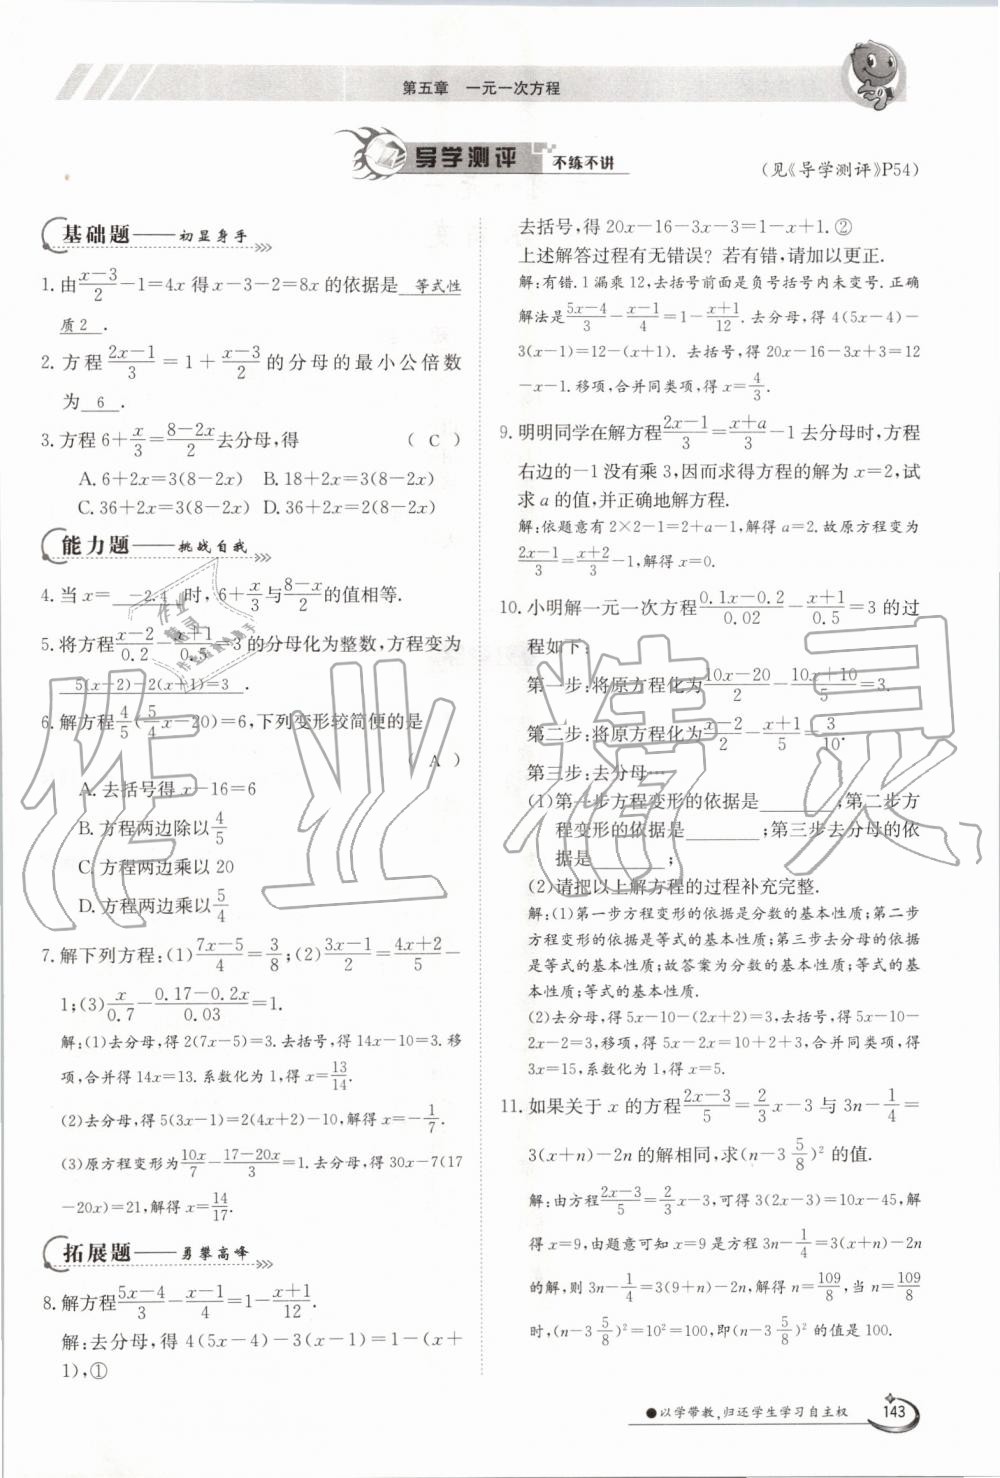 第五章　一元一次方程
导学测评 不练不讲
(见《导学测评》P54)
基础题——初显身手
1. 由\frac{x-3}{2}-1=4x 得 x-3-2=8x 的依据是 等式性
质2 .
2. 方程\frac{2x-1}{3}=1+\frac{x-3}{2}的分母的最小公倍数
为 6 .
3. 方程6+\frac{x}{3}=\frac{8-2x}{2}去分母,得 ( C )
A. 6+2x=3(8-2x) B. 18+2x=3(8-2x)
C. 36+2x=3(8-2x) D. 36+2x=2(8-2x)
能力题——挑战自我
4. 当 x= -2.4 时,6+\frac{x}{3}与\frac{8-x}{2}的值相等.
5. 将方程\frac{x-2}{0.2}-\frac{x+1}{0.5}=3的分母化为整数,方程变为
5(x-2)-2(x+1)=3 .
6. 解方程\frac{4}{5}(\frac{5}{4}x-20)=6,下列变形较简便的是
( A )
A. 去括号得 x-16=6
B. 方程两边除以\frac{4}{5}
C. 方程两边乘以 20
D. 方程两边乘以\frac{5}{4}
7. 解下列方程:(1)\frac{7x-5}{4}=\frac{3}{8};(2)\frac{3x-1}{2}=\frac{4x+2}{5}-
1;(3)\frac{x}{0.7}-\frac{0.17-0.2x}{0.03}=1.
解:(1)去分母,得 2(7x-5)=3. 去括号,得 14x-10=3. 移
项,合并得 14x=13. 系数化为 1,得 x=\frac{13}{14}.
(2)去分母,得 5(3x-1)=2(4x+2)-10,解得 x=-\frac{1}{7}.
(3)原方程变形为\frac{10x}{7}-\frac{17-20x}{3}=1. 去分母,得 30x-7(17
-20x)=21,解得 x=\frac{14}{17}.
拓展题——勇攀高峰
8. 解方程\frac{5x-4}{3}-\frac{x-1}{4}=1-\frac{x+1}{12}.
解:去分母,得 4(5x-4)-3(x-1)=1-(x+
1),①
去括号,得 20x-16-3x-3=1-x+1. ②
上述解答过程有无错误? 若有错,请加以更正.
解:有错. 1 漏乘 12,去括号前面是负号括号内未变号. 正确
解法是\frac{5x-4}{3}-\frac{x-1}{4}=1-\frac{x+1}{12}. 去分母,得 4(5x-4)-
3(x-1)=12-(x+1). 去括号,得 20x-16-3x+3=12
-x-1. 移项,合并同类项,得 x=\frac{4}{3}.
9. 明明同学在解方程\frac{2x-1}{3}=\frac{x+a}{3}-1 去分母时,方程
右边的-1 没有乘 3,因而求得方程的解为 x=2,试
求 a 的值,并正确地解方程.
解:依题意有 2×2-1=2+a-1,解得 a=2. 故原方程变为
\frac{2x-1}{3}=\frac{x+2}{3}-1,解得 x=0.
10. 小明解一元一次方程\frac{0.1x-0.2}{0.02}-\frac{x+1}{0.5}=3 的过
程如下:
第一步:将原方程化为\frac{10x-20}{2}-\frac{10x+10}{5}=3.
第二步:将原方程化为\frac{x-2}{2}-\frac{x+1}{5}=\frac{3}{10}.
第三步:去分母…
(1)第一步方程变形的依据是________;第二步方
程变形的依据是________;第三步去分母的依
据是________;
(2)请把以上解方程的过程补充完整.
解:(1)第一步方程变形的依据是分数的基本性质;第二步
方程变形的依据是等式的基本性质;第三步去分母的依据
是等式的基本性质;故答案为分数的基本性质;等式的基
本性质;等式的基本性质.
(2)去分母,得 5x-10-(2x+2)=3,去括号,得 5x-10-
2x-2=3,移项,得 5x-2x=10+2+3,合并同类项,得
3x=15,系数化为 1,得 x=5.
11. 如果关于 x 的方程\frac{2x-3}{5}=\frac{2}{3}x-3 与 3n-\frac{1}{4}=
3(x+n)-2n 的解相同,求(n-3\frac{5}{8})²的值.
解:由方程\frac{2x-3}{5}=\frac{2}{3}x-3,可得 3(2x-3)=10x-45,解
得 x=9,由题意可知 x=9 是方程 3n-\frac{1}{4}=3(x+n)-2n
的解,则 3n-\frac{1}{4}=3(9+n)-2n,解得 n=\frac{109}{8},当 n=\frac{109}{8}
时,(n-3\frac{5}{8})²=10²=100,即(n-3\frac{5}{8})²的值是 100.
●以学带教,归还学生学习自主权
143
作业精灵